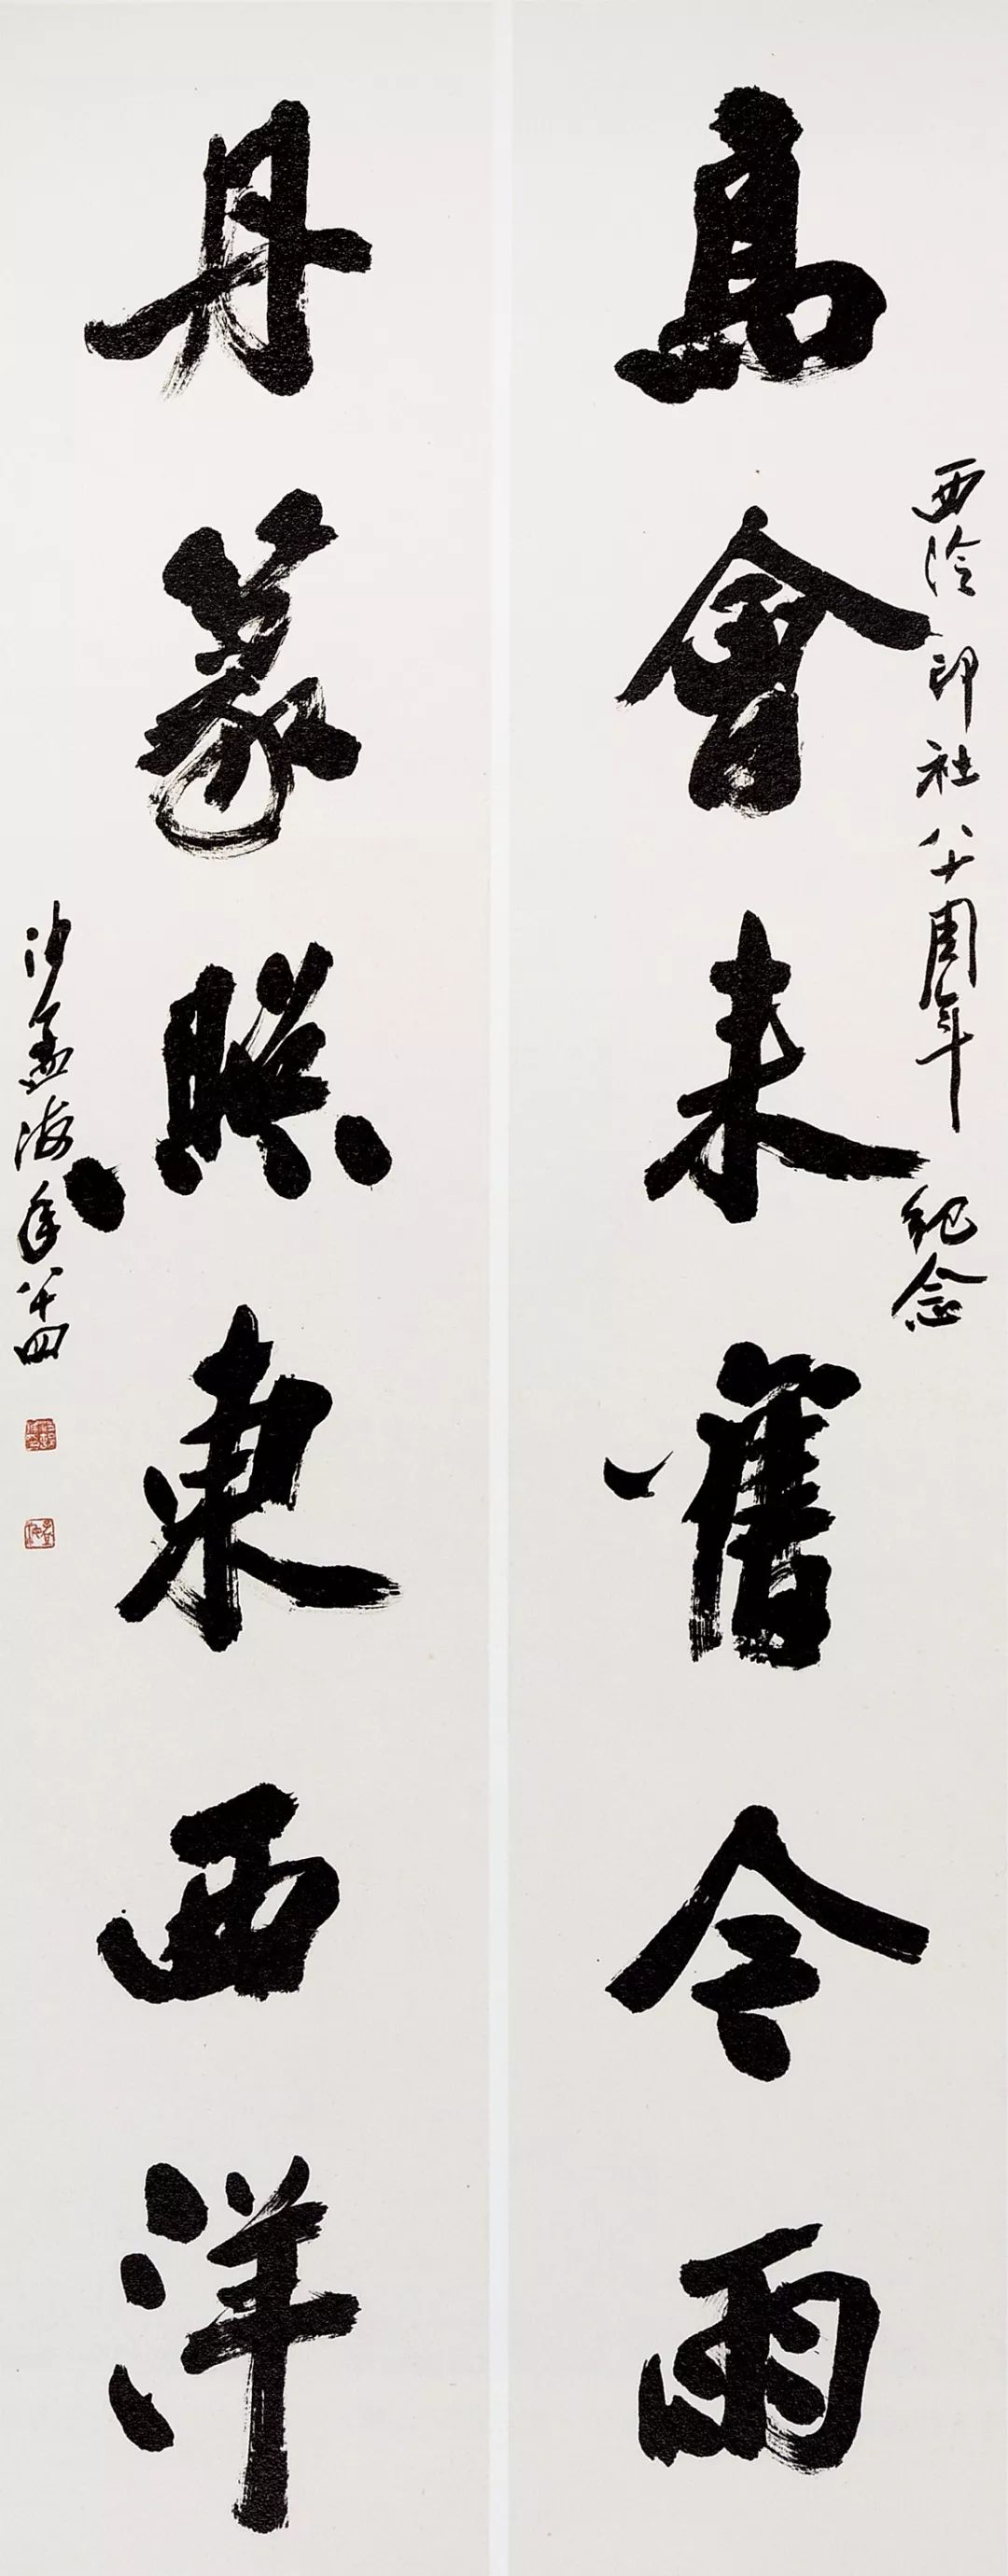 高會来舊今雨
西泠印社八十周年紀念
丹篆照東西洋
沙孟海年八十四